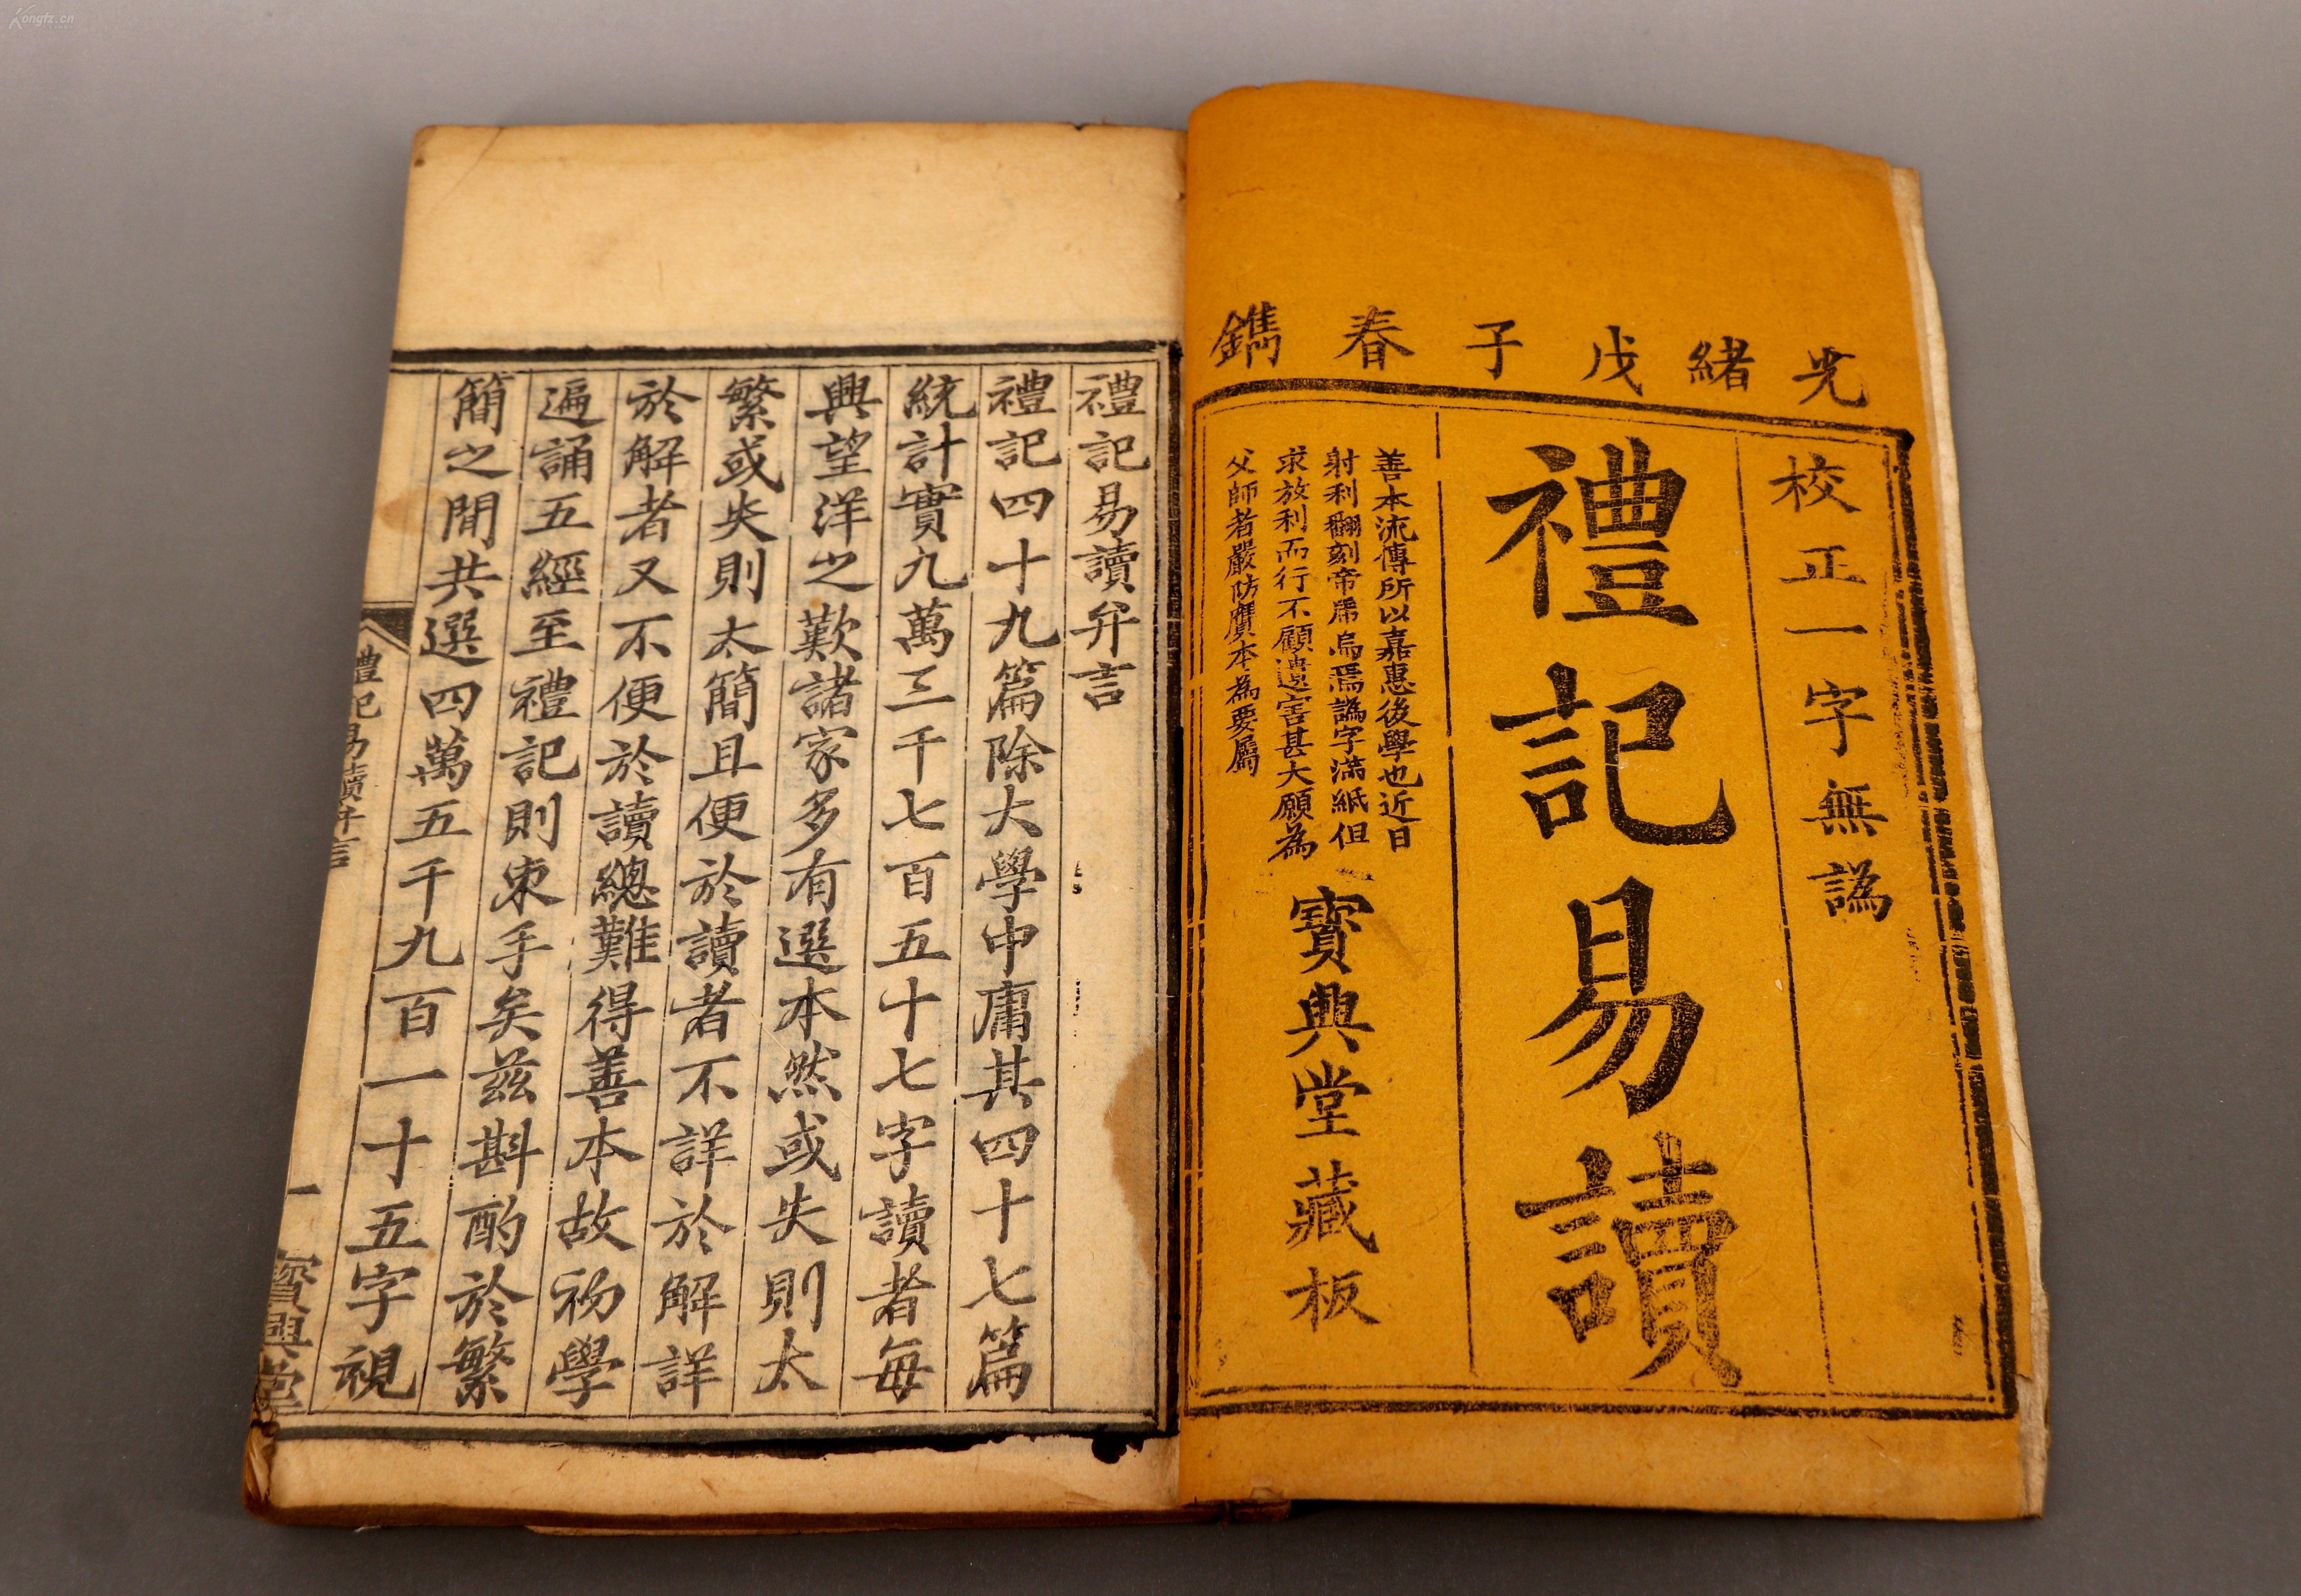 Kongfz.cn
光緒戊子春鐫
校正一字無譌
禮記易讀
善本流傳所以嘉惠後學也近日
射利翻刻帝席烏焉譌字滿紙但
求放利而行不顧遺害甚大願為
父師者嚴防贋本為要屬
寶興堂藏板
禮記易讀弁言
禮記四十九篇除大學中庸其四十七篇
統計實九萬三千七百五十七字讀者每
興望洋之歎諸家多有選本然或失則太
繁或失則太簡且便於讀者不詳於解詳
於解者又不便於讀總難得善本故初學
遍誦五經至禮記則束手矣茲斟酌於繁
簡之閒共選四萬五千九百一十五字視
禮記易讀弁言
一
寶興堂